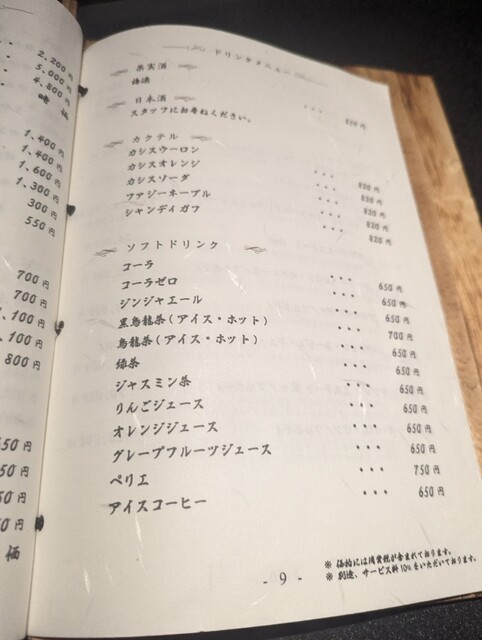 2,200円
5,000円
4,800円
時 価
1,400円
1,400円
1,600円
1,300円
300円
550円
700円
700円
,100円
,100円
800円
50円
50円
50円
0円
価
ドリンクメニュー
果実酒
梅酒 ・・・
日本酒
スタッフにお尋ねください。
カクテル
カシスウーロン ・・・ 820円
カシスオレンジ ・・・ 820円
カシスソーダ ・・・ 820円
ファジーネーブル ・・・ 820円
シャンディガフ ・・・ 820円
ソフトドリンク
コーラ ・・・ 650円
コーラゼロ ・・・ 650円
ジンジャエール ・・・ 650円
黒烏龍茶(アイス・ホット) ・・・ 700円
烏龍茶(アイス・ホット) ・・・ 650円
緑茶 ・・・ 650円
ジャスミン茶 ・・・ 650円
りんごジュース ・・・ 650円
オレンジジュース ・・・ 650円
グレープフルーツジュース ・・・ 650円
ペリエ ・・・ 750円
アイスコーヒー ・・・ 650円
※ 価格には消費税が含まれております。
※ 別途、サービス料10%をいただいております。
- 9 -